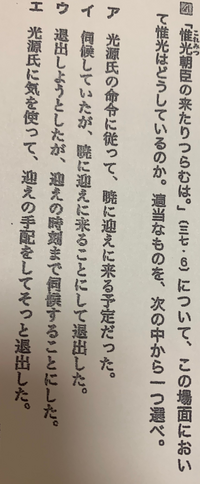 「惟光朝臣の来たりつらむは。」(三七・6)について、この場面におい
これみつ
て惟光はどうしているのか。適当なものを、次の中から一つ選べ。
ア 光源氏の命令に従って、暁に迎えに来る予定だった。
イ 伺候していたが、暁に迎えに来ることにして退出した。
ウ 退出しようとしたが、迎えの時刻まで伺候することにした。
エ 光源氏に気を使って、迎えの手配をしてそっと退出した。